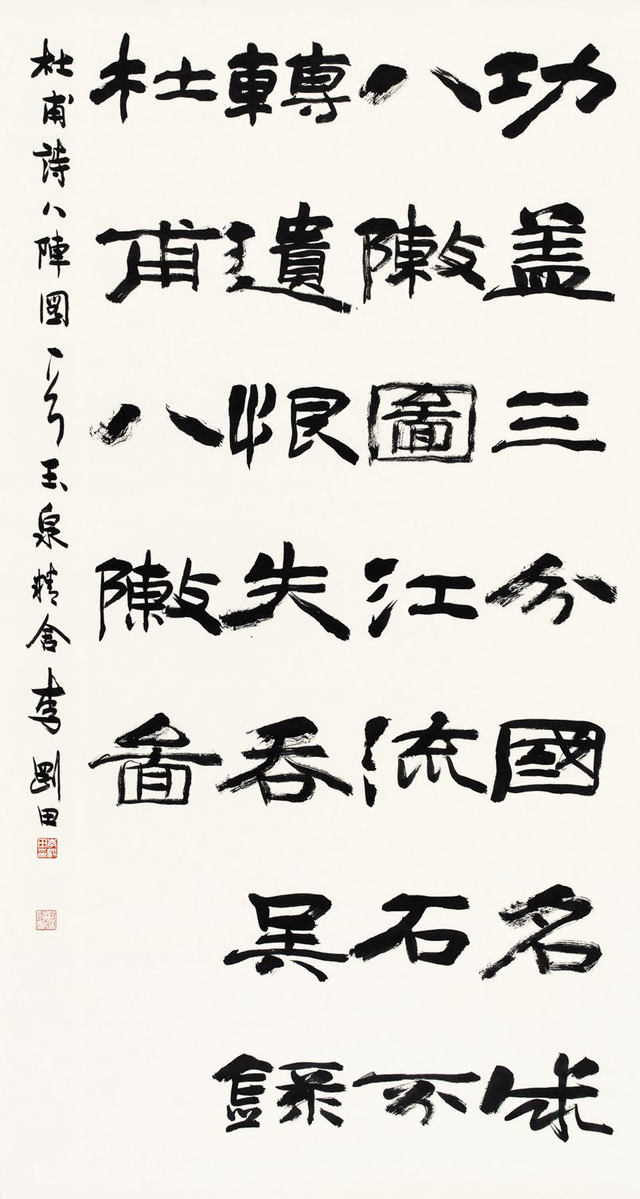 功盖三分國名成
八敶圖江流石不
轉遺恨失吞吴錄
杜甫八敶啚
杜甫詩八陣圖一首玉泉精舍李剛田